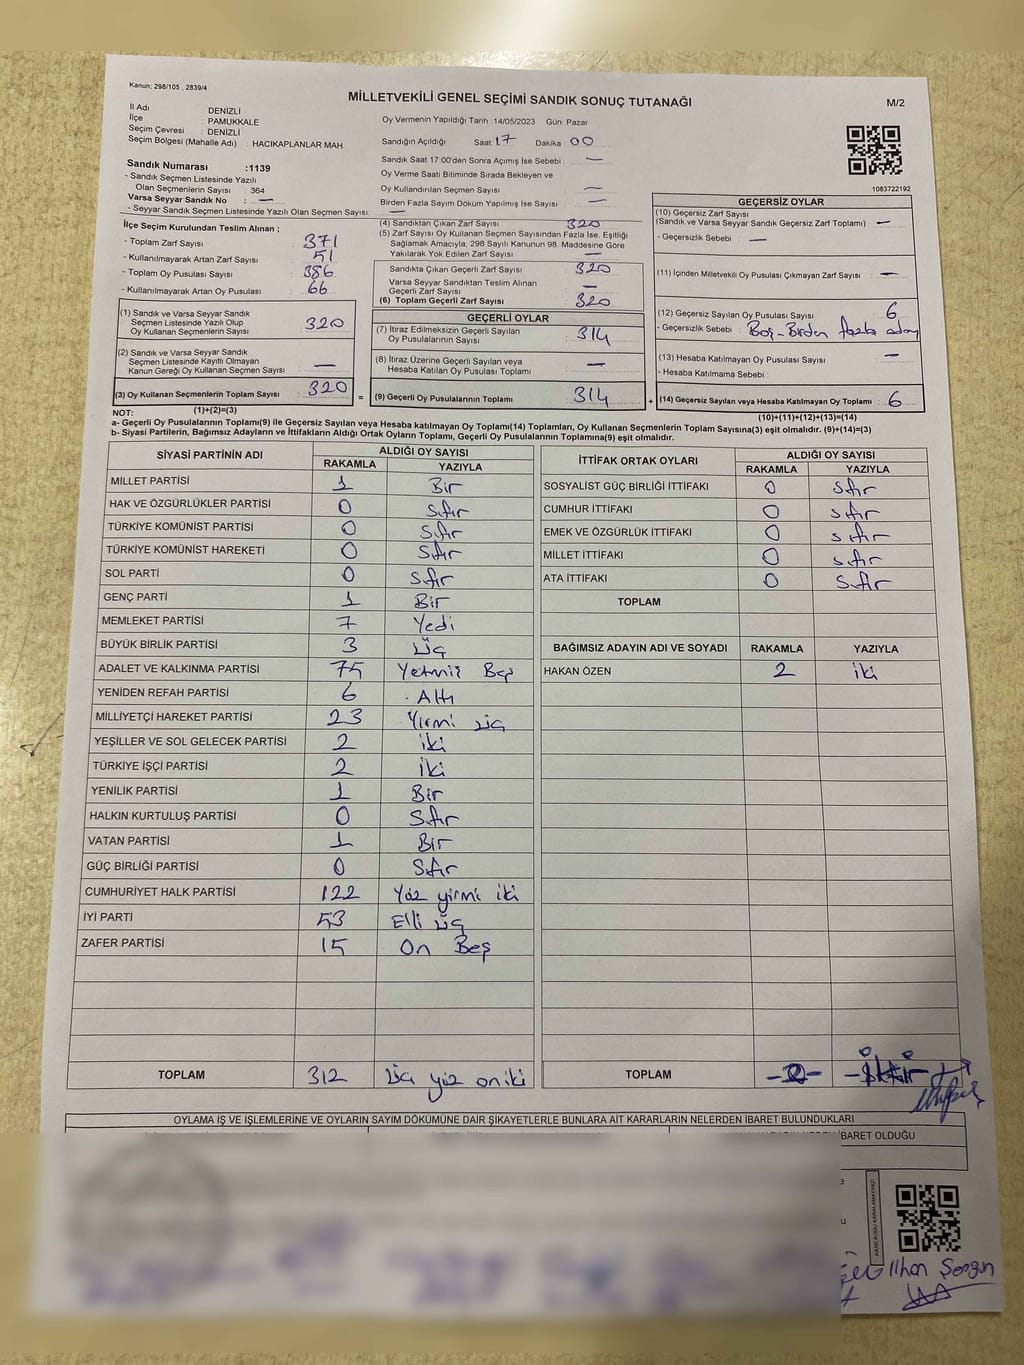 Kanun; 298/105 , 2839/4
MİLLETVEKİLİ GENEL SEÇİMİ SANDIK SONUÇ TUTANAĞI
M/2
İl Adı : DENİZLİ
İlçe : PAMUKKALE
Seçim Çevresi : DENİZLİ
Seçim Bölgesi (Mahalle Adı) : HACIKAPLANLAR MAH.
Oy Vermenin Yapıldığı Tarih :14/05/2023 Gün: Pazar
Sandığın Açıldığı Saat :17 Dakika :00
Sandık Saat 17:00'den Sonra Açılmış İse Sebebi : —
Oy Verme Saati Bitiminde Sırada Bekleyen ve
Oy Kullandırılan Seçmen Sayısı : —
Birden Fazla Sayım Döküm Yapılmış İse Sayısı : —
1083722192
Sandık Numarası :1139
- Sandık Seçmen Listesinde Yazılı
Olan Seçmenlerin Sayısı : 364
Varsa Seyyar Sandık No : —
- Seyyar Sandık Seçmen Listesinde Yazılı Olan Seçmen Sayısı: —
İlçe Seçim Kurulundan Teslim Alınan ;
- Toplam Zarf Sayısı : 371
- Kullanılmayarak Artan Zarf Sayısı : 51
- Toplam Oy Pusulası Sayısı : 386
- Kullanılmayarak Artan Oy Pusulası : 66
(1) Sandık ve Varsa Seyyar Sandık
Seçmen Listesinde Yazılı Olup
Oy Kullanan Seçmenlerin Sayısı : 320
(2) Sandık ve Varsa Seyyar Sandık
Seçmen Listesinde Kayıtlı Olmayan
Kanun Gereği Oy Kullanan Seçmen Sayısı : —
(3) Oy Kullanan Seçmenlerin Toplam Sayısı : 320
(1)+(2)=(3)
(4) Sandıktan Çıkan Zarf Sayısı : 320
(5) Zarf Sayısı Oy Kullanan Seçmen Sayısından Fazla İse, Eşitliği
Sağlamak Amacıyla, 298 Sayılı Kanunun 98. Maddesine Göre
Yakılarak Yok Edilen Zarf Sayısı : —
Sandıkta Çıkan Geçerli Zarf Sayısı : 320
Varsa Seyyar Sandıktan Teslim Alınan
Geçerli Zarf Sayısı : —
(6) Toplam Geçerli Zarf Sayısı : 320
GEÇERLİ OYLAR
(7) İtiraz Edilmeksizin Geçerli Sayılan
Oy Pusulalarının Sayısı : 314
(8) İtiraz Üzerine Geçerli Sayılan veya
Hesaba Katılan Oy Pusulası Toplamı : —
= (9) Geçerli Oy Pusulalarının Toplamı : 314
GEÇERSİZ OYLAR
(10) Geçersiz Zarf Sayısı
(Sandık ve Varsa Seyyar Sandık Geçersiz Zarf Toplamı) : —
- Geçersizlik Sebebi : —
(11) İçinden Milletvekili Oy Pusulası Çıkmayan Zarf Sayısı : —
(12) Geçersiz Sayılan Oy Pusulası Sayısı : 6
- Geçersizlik Sebebi : Boş-Birden fazla aday
(13) Hesaba Katılmayan Oy Pusulası Sayısı : —
- Hesaba Katılmama Sebebi :
+ (14) Geçersiz Sayılan veya Hesaba Katılmayan Oy Toplamı : 6
(10)+(11)+(12)+(13)=(14)
NOT:
a- Geçerli Oy Pusulalarının Toplamı(9) ile Geçersiz Sayılan veya Hesaba katılmayan Oy Toplamı(14) Toplamları, Oy Kullanan Seçmenlerin Toplam Sayısına(3) eşit olmalıdır. (9)+(14)=(3)
b- Siyasi Partilerin, Bağımsız Adayların ve İttifakların Aldığı Ortak Oyların Toplamı, Geçerli Oy Pusulalarının Toplamına(9) eşit olmalıdır.
SİYASİ PARTİNİN ADI ALDIĞI OY SAYISI
RAKAMLA YAZIYLA
MİLLET PARTİSİ 1 Bir
HAK VE ÖZGÜRLÜKLER PARTİSİ 0 Sıfır
TÜRKİYE KOMÜNİST PARTİSİ 0 Sıfır
TÜRKİYE KOMÜNİST HAREKETİ 0 Sıfır
SOL PARTİ 0 Sıfır
GENÇ PARTİ 1 Bir
MEMLEKET PARTİSİ 7 Yedi
BÜYÜK BİRLİK PARTİSİ 3 Üç
ADALET VE KALKINMA PARTİSİ 75 Yetmiş Beş
YENİDEN REFAH PARTİSİ 6 Altı
MİLLİYETÇİ HAREKET PARTİSİ 23 Yirmi üç
YEŞİLLER VE SOL GELECEK PARTİSİ 2 iki
TÜRKİYE İŞÇİ PARTİSİ 2 iki
YENİLİK PARTİSİ 1 Bir
HALKIN KURTULUŞ PARTİSİ 0 Sıfır
VATAN PARTİSİ 1 Bir
GÜÇ BİRLİĞİ PARTİSİ 0 Sıfır
CUMHURİYET HALK PARTİSİ 122 Yüz yirmi iki
İYİ PARTİ 53 Elli üç
ZAFER PARTİSİ 15 On Beş
TOPLAM 312 Üç yüz on iki
İTTİFAK ORTAK OYLARI ALDIĞI OY SAYISI
RAKAMLA YAZIYLA
SOSYALİST GÜÇ BİRLİĞİ İTTİFAKI 0 Sıfır
CUMHUR İTTİFAKI 0 Sıfır
EMEK VE ÖZGÜRLÜK İTTİFAKI 0 Sıfır
MİLLET İTTİFAKI 0 Sıfır
ATA İTTİFAKI 0 Sıfır
TOPLAM
BAĞIMSIZ ADAYIN ADI VE SOYADI RAKAMLA YAZIYLA
HAKAN ÖZEN 2 iki
TOPLAM -2-
OYLAMA İŞ VE İŞLEMLERİNE VE OYLARIN SAYIM DÖKÜMÜNE DAİR ŞİKAYETLERLE BUNLARA AİT KARARLARIN NELERDEN İBARET BULUNDUKLARI
İBARET OLDUĞU
KARE KODU KARALAMAYINIZ!
İlhan Şengün